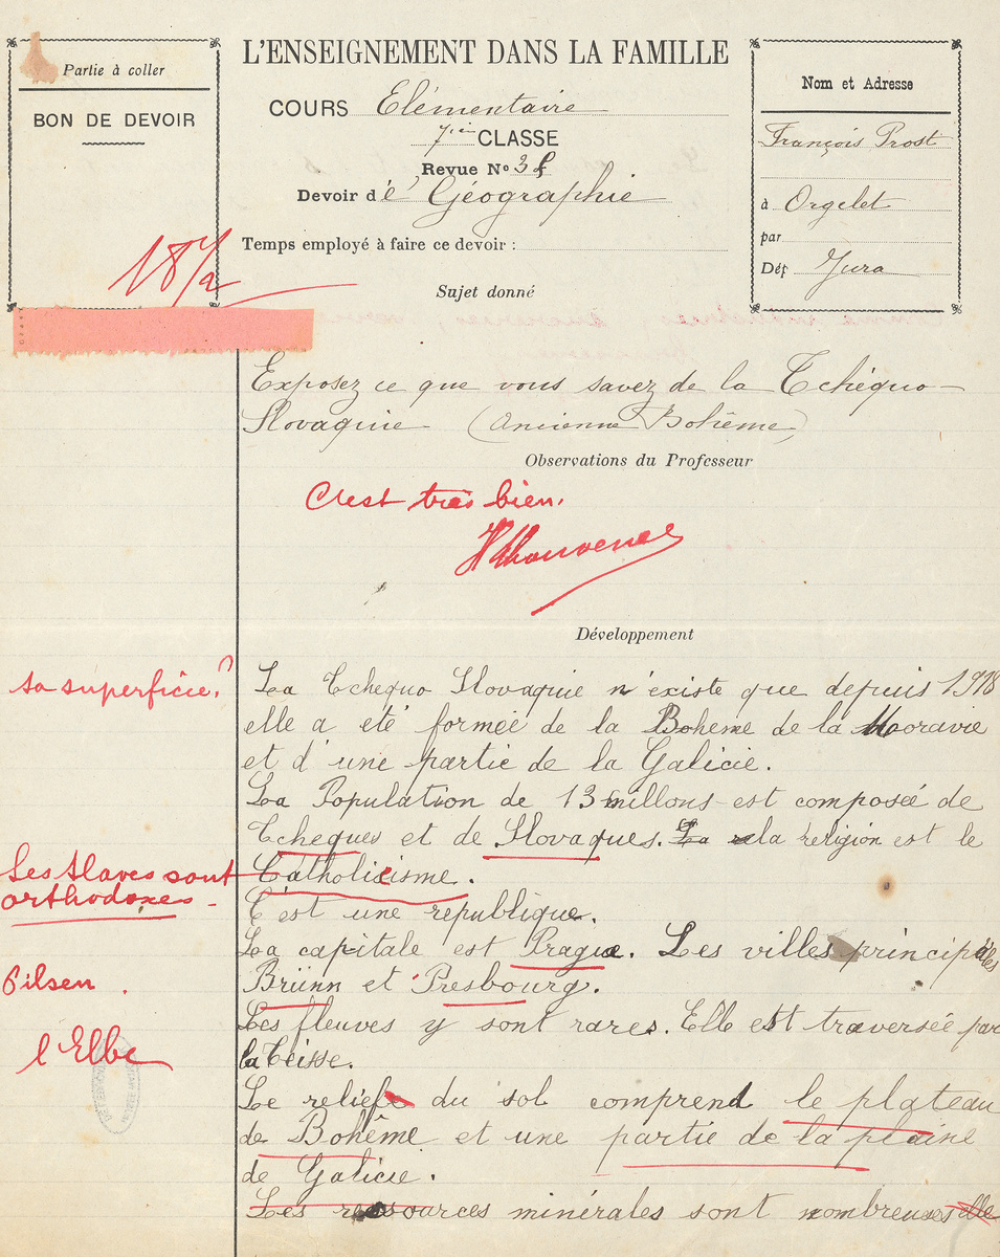 Partie à coller
BON DE DEVOIR
18 1/2
L'ENSEIGNEMENT DANS LA FAMILLE
COURS Elémentaire
7ième CLASSE
Revue No 38
Devoir de Géographie
Temps employé à faire ce devoir :
Nom et Adresse
François Prost
à Orgelet
par
Dép Jura
Sujet donné
Exposez ce que vous savez de la Tchéquo-
Slovaquie (Ancienne Bohême)
Observations du Professeur
C'est très bien.
Développement
sa superficie ?
La Tchequo Slovaquie n'existe que depuis 1918
elle a eté formée de la Boheme de la Mooravie
et d'une partie de la Galicie.
La Population de 13 millons est composée de
Tcheques et de Slovaques. La la religion est le
Les Slaves sont
orthodoxes -
Catholicisme.
C'est une republique.
La capitale est Prague. Les villes principales
Pilsen .
Brünn et Presbourg.
Les fleuves y sont rares. Elle est traversée par
l'Elbe
la Teisse.
Le reliefe du sol comprend le plateau
de Bohême et une partie de la plaine
de Galicie.
Les ressources minérales sont nombreuses elle